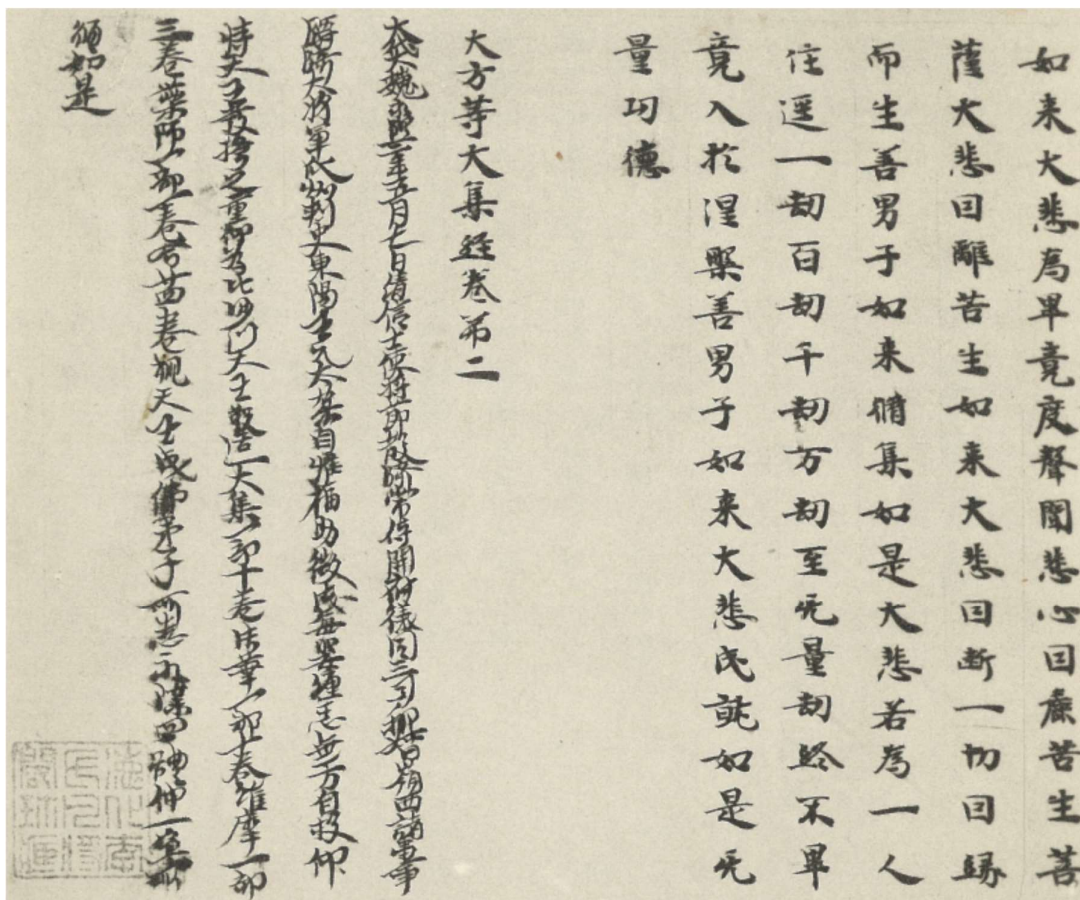 如来大悲為畢竟度聲聞悲心囙麁苦生菩
薩大悲囙離苦生如来大悲囙斷一切囙緣
而生善男子如来脩集如是大悲若為一人
住逕一劫百劫千劫万劫至无量劫終不畢
竟入於涅槃善男子如来大悲成就如是无
量功德
大方等大集經卷第二
大代大魏永熙二年五月七日清信士使持節散騎常侍開府儀同三司都督嶺西諸軍事
驃騎大將軍瓜州刺史東陽王元太榮自惟福助微淺每嬰纏志無方自救仰
恃天王發誓之重仰為比沙門天王敬造大集一部十卷法華一部十卷維摩一部
三卷藥師一部一卷合廿四卷天王成佛弟子所患永除四體休寧所
願如是
德化李
氏凡將
閣珍藏